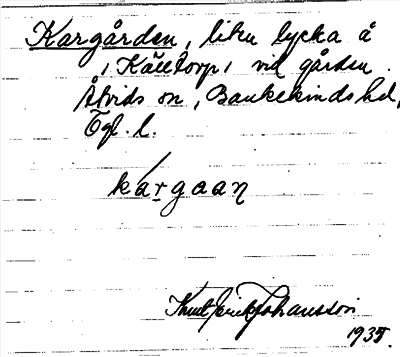 Kargården, liten lycka å
, Kåretorp, vid gården.
Åtvids sn, Bankekinds hd,
Ögl. l.
kargaan
Knut Erik Johansson
1935.